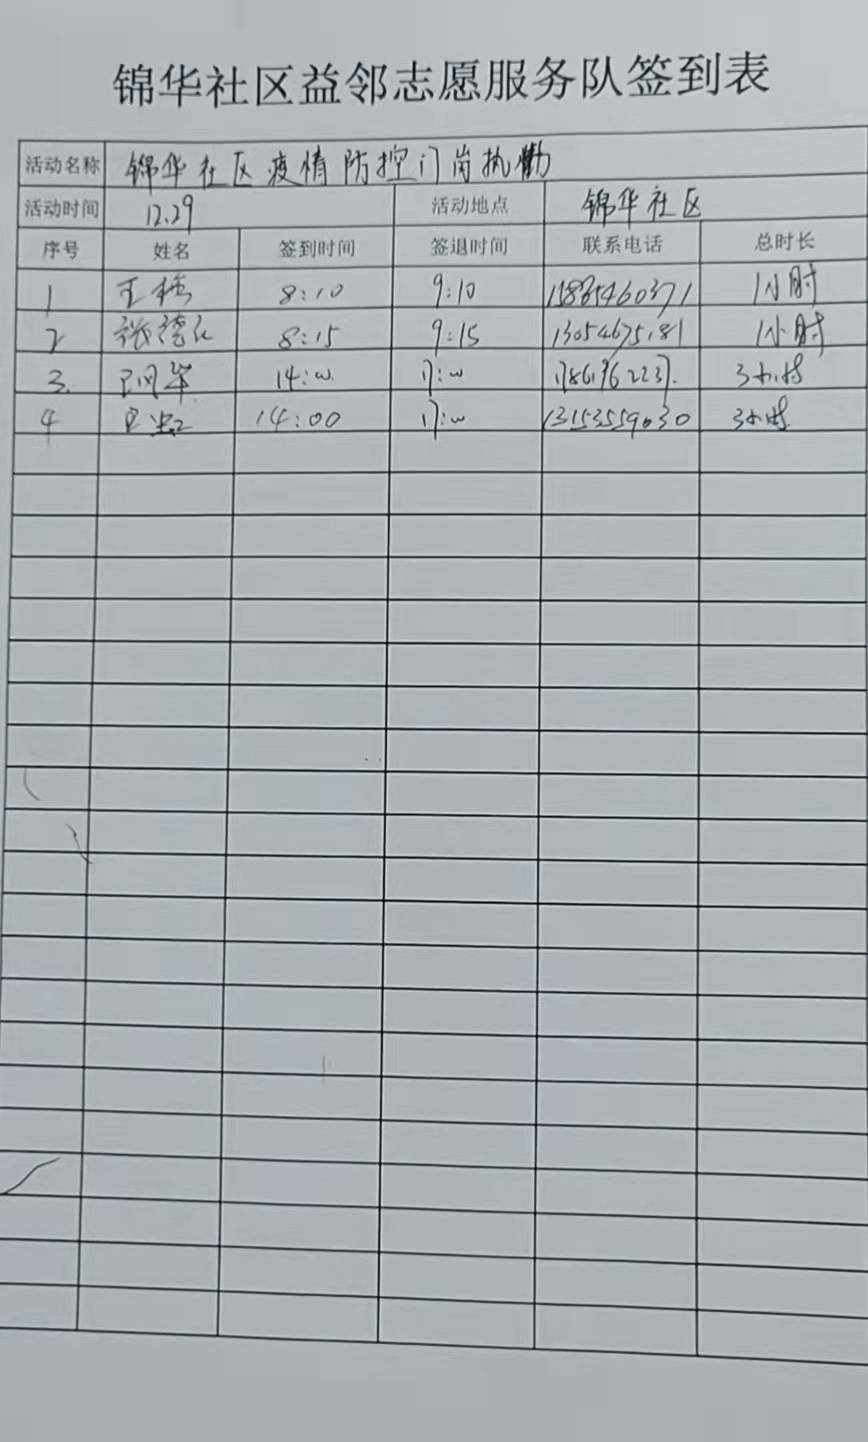 锦华社区益邻志愿服务队签到表
活动名称 锦华社区疫情防控门岗执勤
活动时间 12.29 活动地点 锦华社区
序号 姓名 签到时间 签退时间 联系电话 总时长
1 8:10 9:10 1小时
2 8:15 9:15 1小时
3. 14:00 17:00 3小时
4 14:00 17:00 3小时